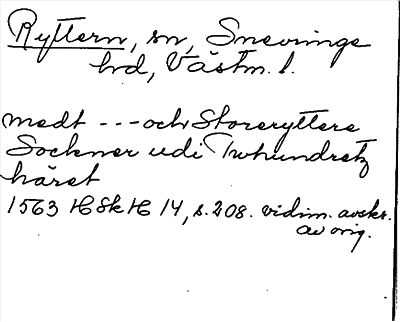 Ryttern, sn, Snevringe
hd, Västm. l.
medt --- och Storeryttere
Sockner udi Twhundretz
häret
1563 HSkH 14, s. 208. vidim. avskr.
av orig.